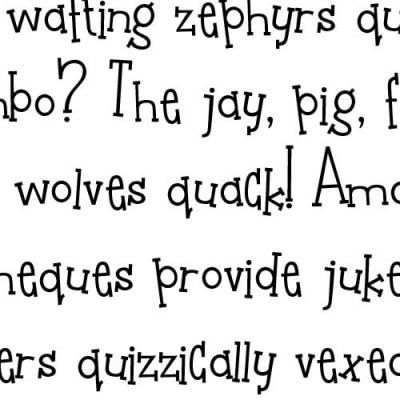 wafting zephyrs qu
mbo? The jay, pig, f
wolves quack! Amo
heques provide juke
ers quizzically vexed